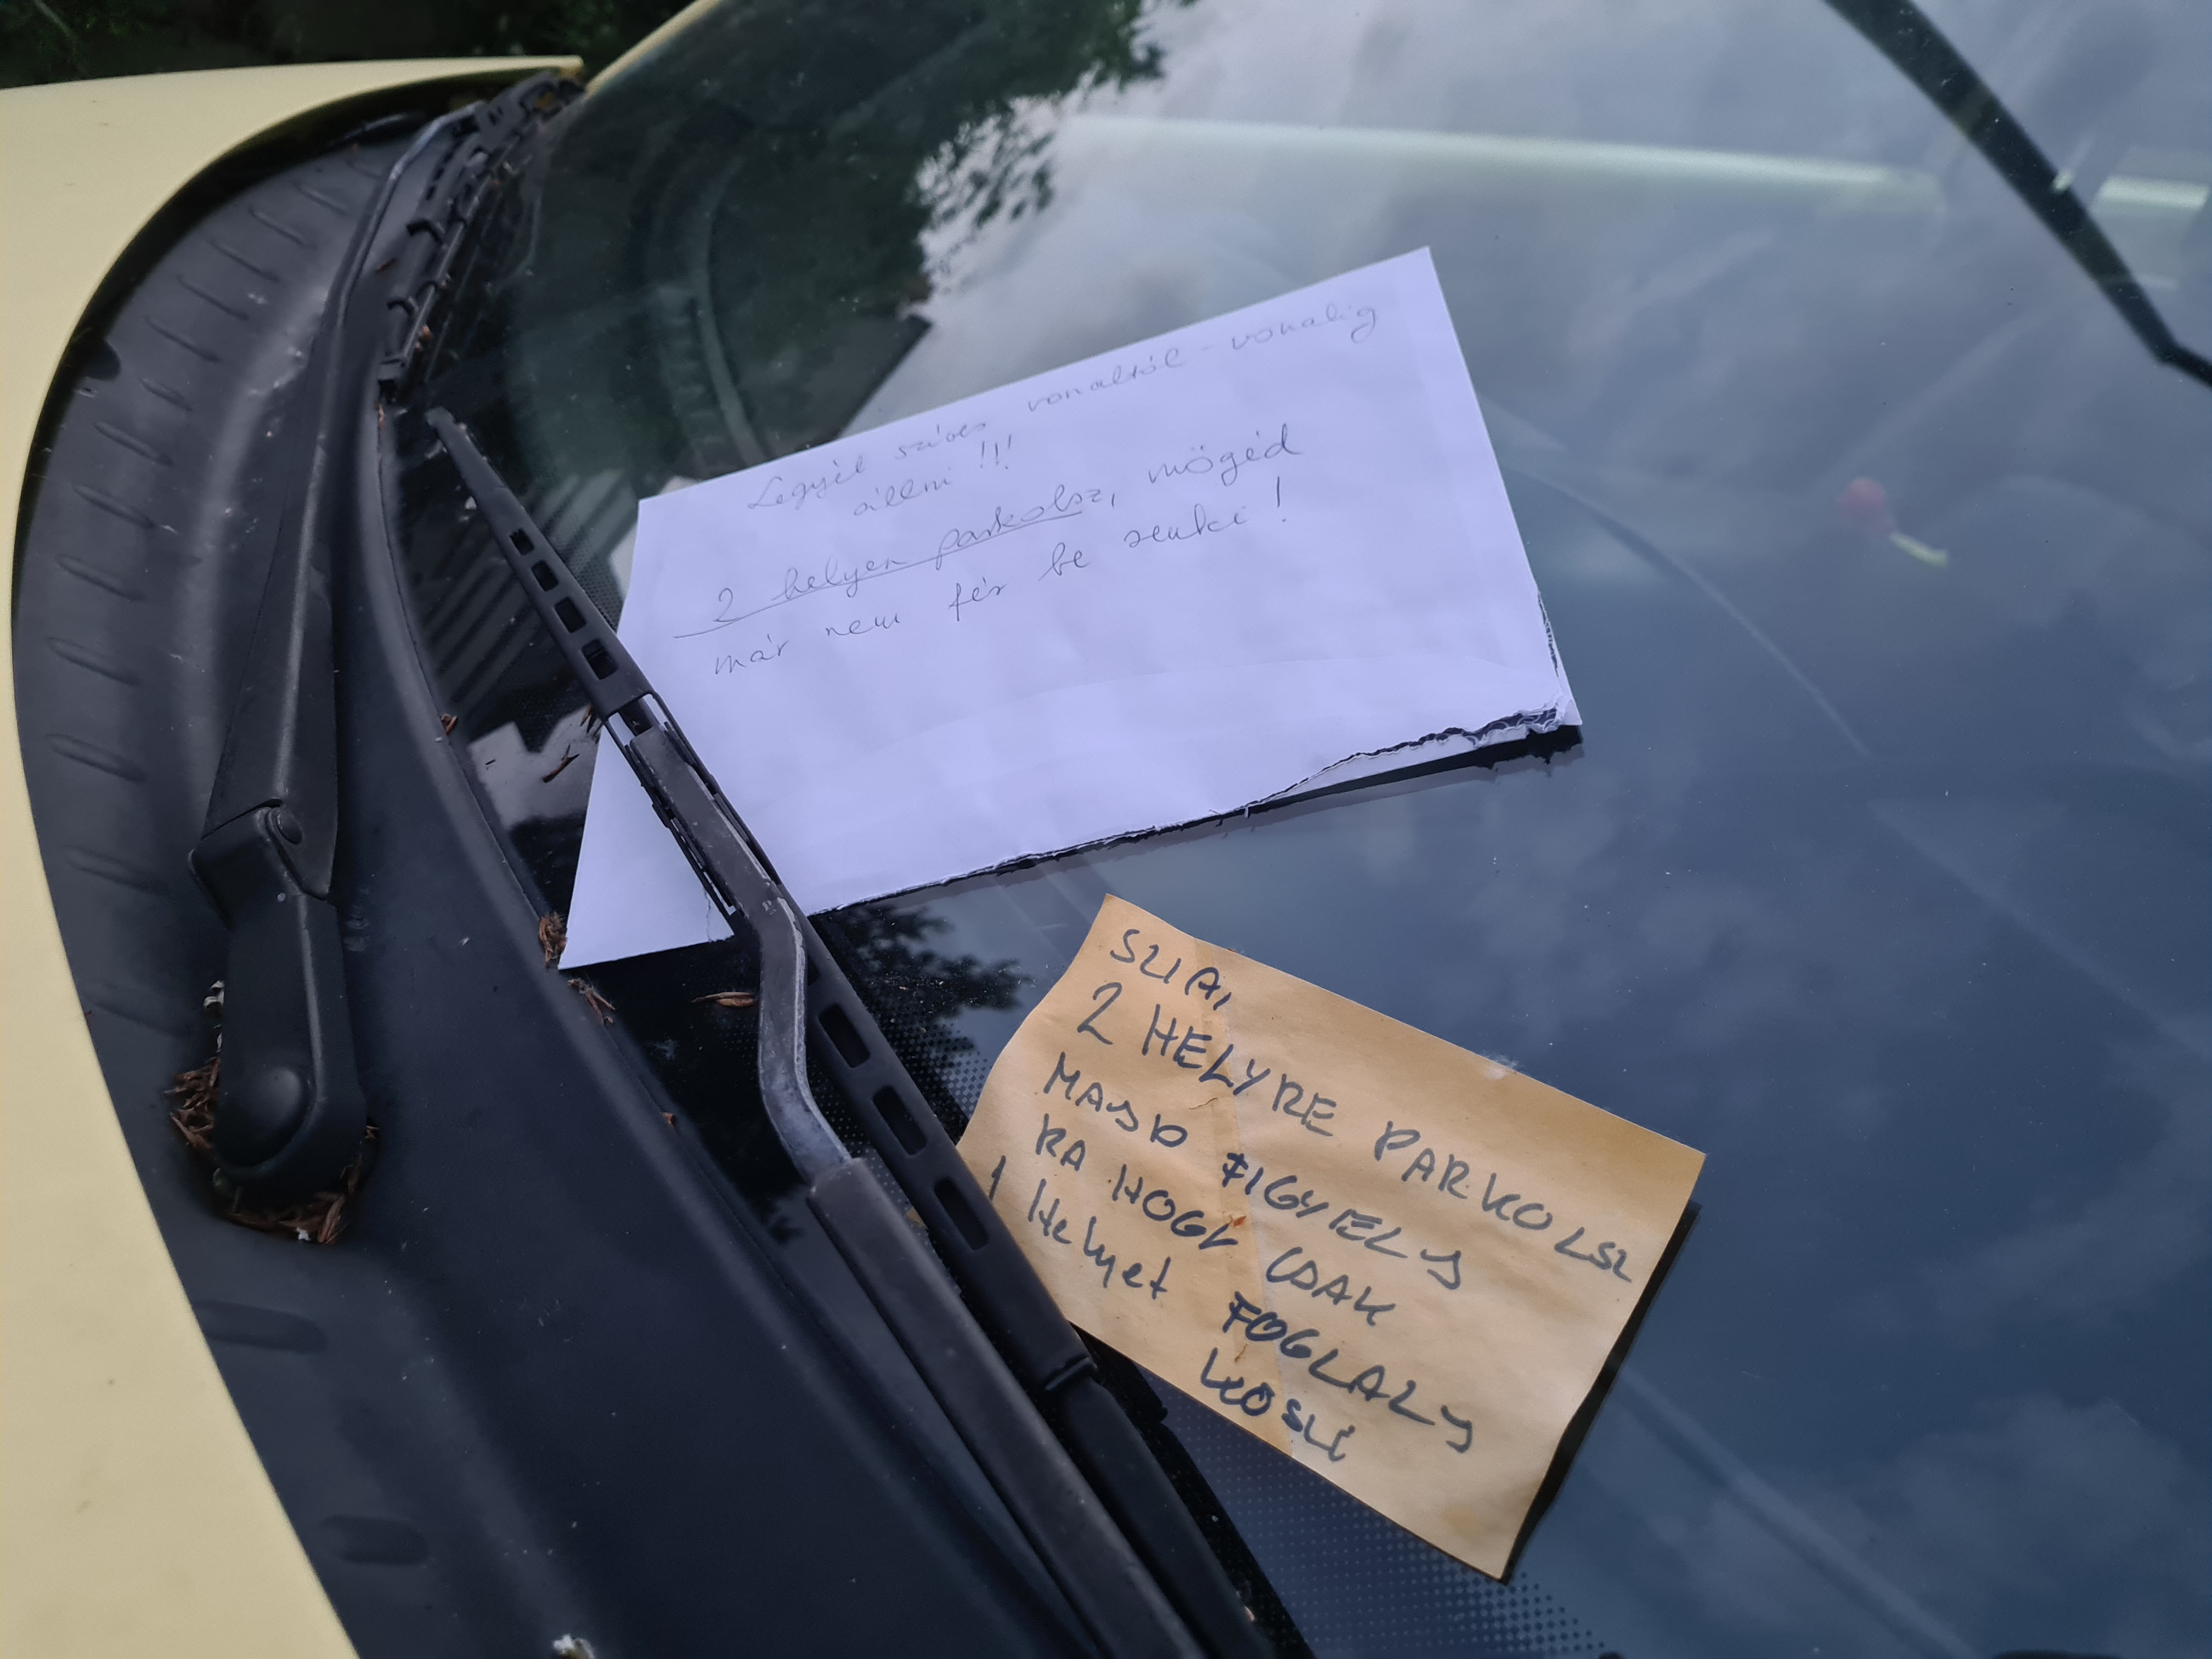 Legyél szíves vonaltól - vonalig
állni !!!
2 helyen parkolsz, mögéd
már nem fér be senki !
SZIA,
2 HELYRE PARKOLSZ
MAJD FIGYELJ
RA HOGY CSAK
1 Helyet FOGLALJ
KÖSZI